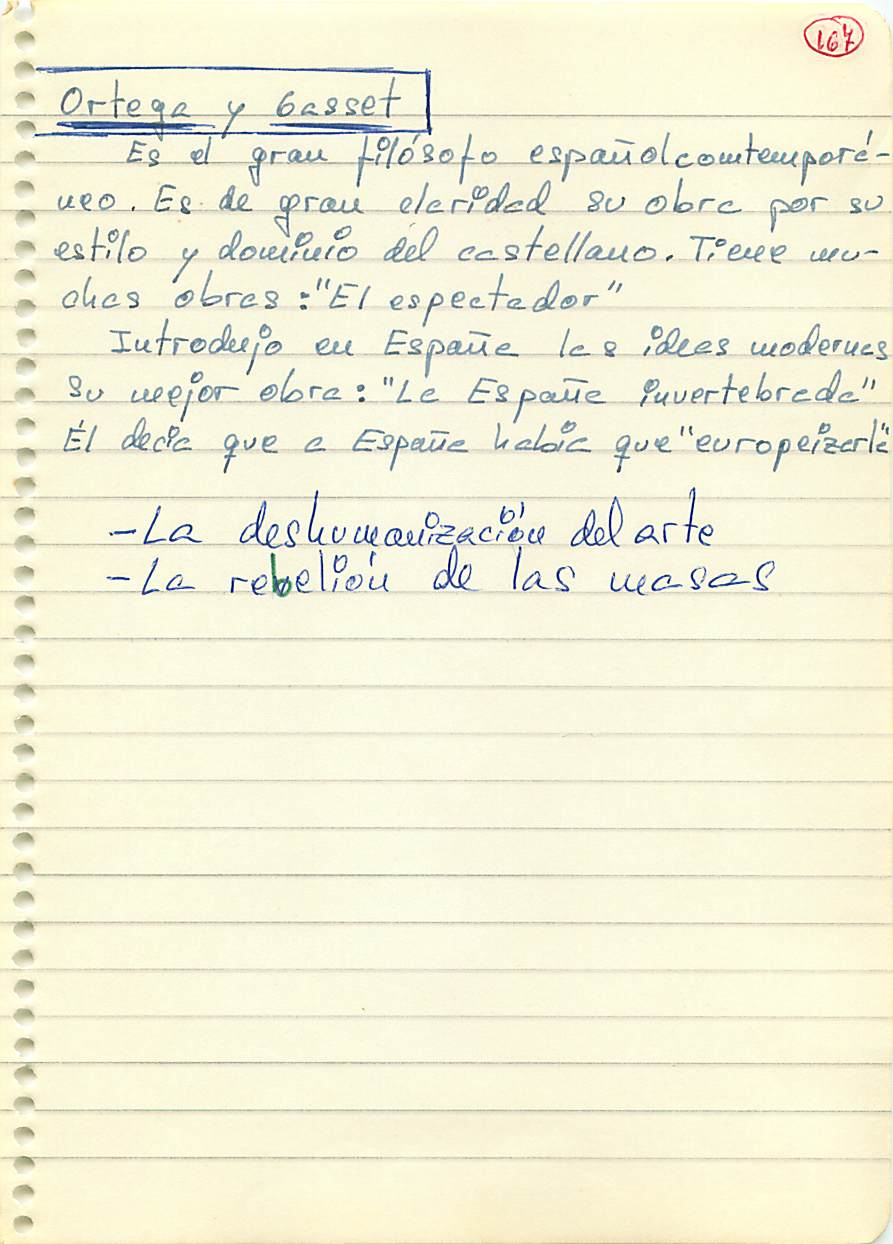 167
Ortega y Gasset
Es el gran filósofo español comtemporá-
neo. Es de gran claridad su obra por su
estilo y dominio del castellano. Tiene mu-
chas obras: "El espectador"
Introdujo en España las ideas modernas
su mejor obra: "La España invertebrada"
Él decia que a España habia que "europeizarla"
- La deshumanización del arte
- La rebelión de las masas